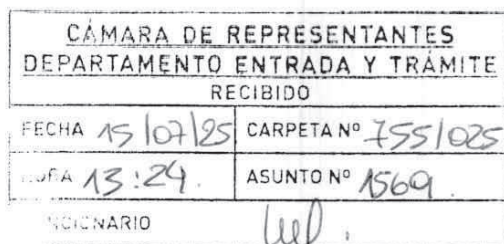 CÁMARA DE REPRESENTANTES
DEPARTAMENTO ENTRADA Y TRÁMITE
RECIBIDO
FECHA 15/07/25 CARPETA Nº 755/025
ORA 13:24. ASUNTO Nº 1569.
NCIONARIO